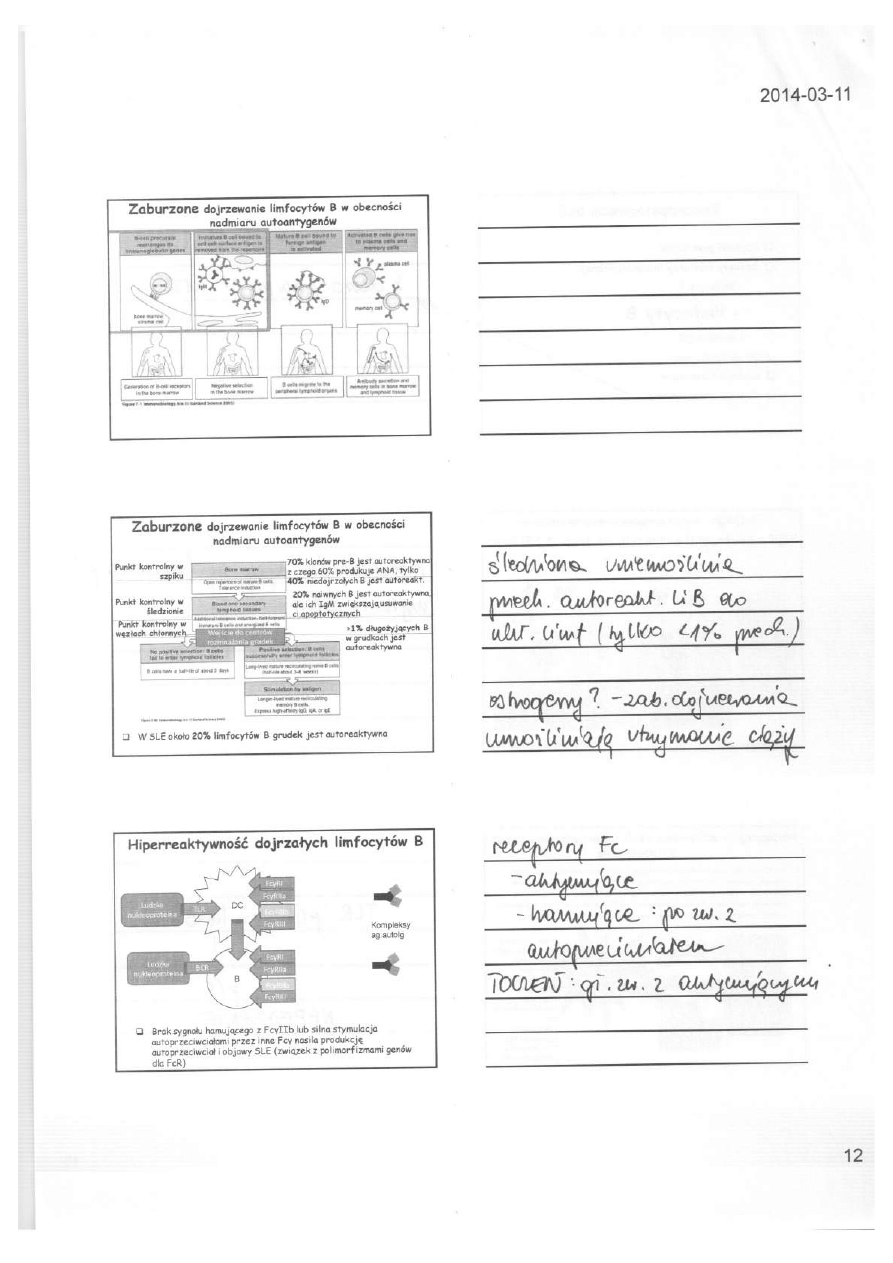 2014-03-11
Zaburzone dojrzewanie limfocytów B w obecności
nadmiaru autoantygenów
B-cell precursor
rearranges its
immunoglobulin genes
Immature B cell bound to
self cell-surface antigen is
removed from the repertoire
Mature B cell bound to
foreign antigen
is activated
Activated B cells give rise
to plasma cells and
memory cells
IgM
IgD
plasma cell
memory cell
bone marrow
stromal cell
Generation of B-cell receptors
in the bone marrow
Negative selection
in the bone marrow
B cells migrate to the
peripheral lymphoid organs
Antibody secretion and
memory cells in bone marrow
and lymphoid tissue
Zaburzone dojrzewanie limfocytów B w obecności
nadmiaru autoantygenów
Punkt kontrolny w
szpiku
Punkt kontrolny w
śledzionie
Punkt kontrolny w
węzłach chłonnych
Bone marrow
Blood and secondary
lymphoid tissues
Wejście do centrów
rozmnażania grudek
70% klonów pre-B jest autoreaktywna
z czego 60% produkuje ANA, tylko
40% niedojrzałych B jest autoreakt.
20% naiwnych B jest autoreaktywna,
ale ich IgM zwiększają usuwanie
ci.apoptotycznych
>1% długożyjących B
w grudkach jest
autoreaktywna
No positive selection: B cells
fail to enter lymphoid follicles
Positive selection: B cells
successfully enter lymphoid follicles
B cells have a half-life of about 3 days
Long-lived mature recirculating naive B cells
Stimulation by antigen
Longer-lived mature recirculating
memory B cells.
Express high-affinity IgG, IgA, or IgE
W SLE około 20% limfocytów B grudek jest autoreaktywna
śledziona uniemożliwia
przech. autoreakt. Li B do
ukł. limf (tylko <1% przech.)
estrogeny? - zab. dojrzewania
umożliwiają utrzymanie ciąży
Hiperreaktywność dojrzałych limfocytów B
Ludzkie
nukleoproteiny
TLR
DC
FcγRI
FcγRIIa
FcγRIIb
FcγRIII
Ludzkie
nukleoproteiny
BCR
B
FcγRI
FcγRIIa
FcγRIIb
FcγRIII
Kompleksy
ag.autoIg
Brak sygnołu hamującego z FcγIIb lub silna stymulacja
autoprzeciwciałami przez inne Fcγ nasila produkcję
autoprzeciwciał i objawy SLE (związek z polimorfizmami genów
dla FcR)
receptory Fc
- aktywujące
- hamujące : po zw. z
autoprzeciwciałem
TOCZEŃ : gł. zw. z aktywującymi
12